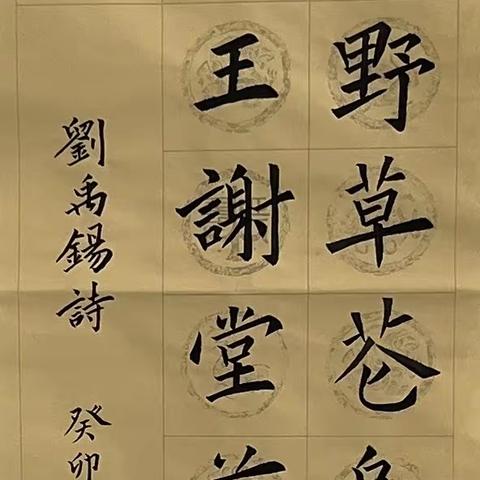 野草芲
王謝堂
劉禹錫詩 癸卯